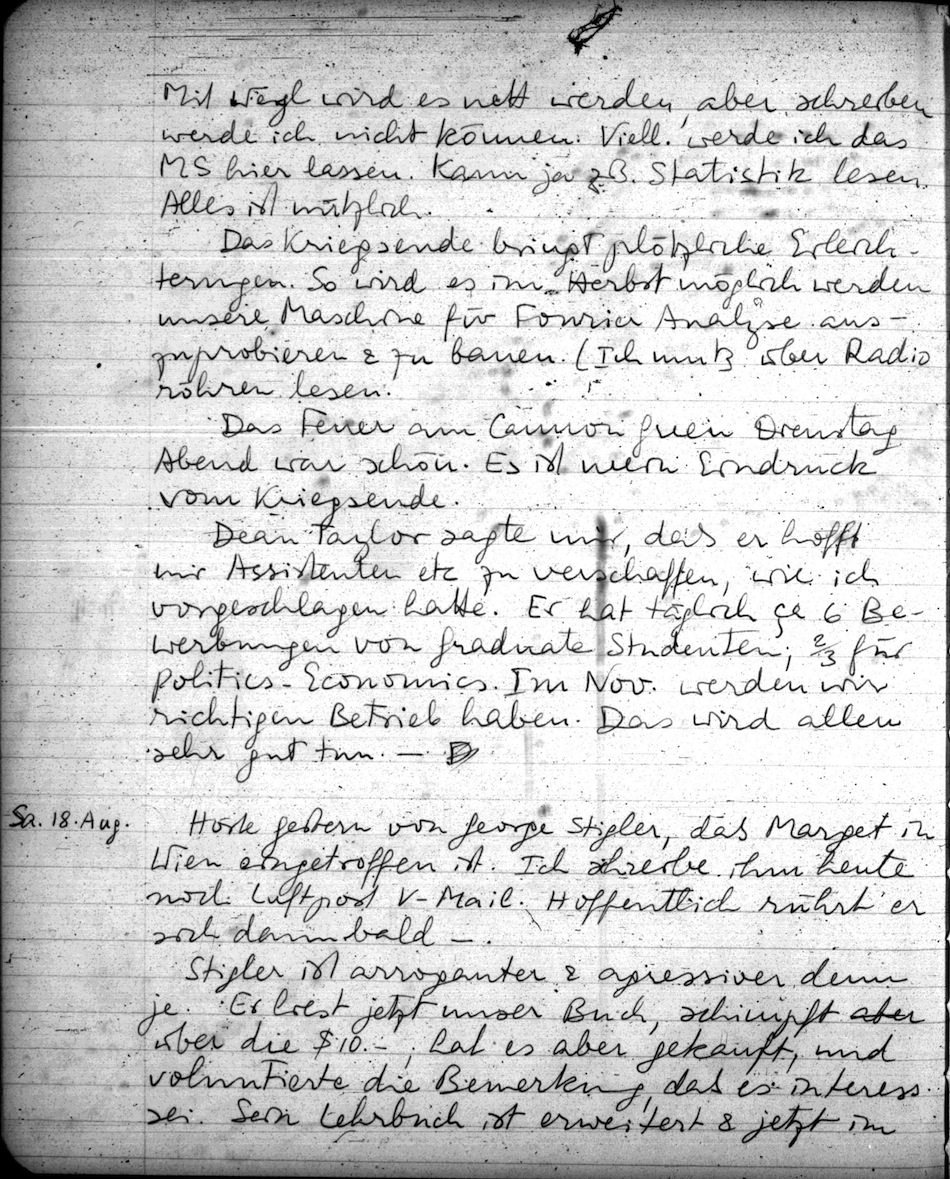 Mit Weyl wird es nett werden, aber schreiben
werde ich nicht können. Viell. werde ich das
MS hier lassen. Kann ja z.B. Statistik lesen.
Alles ist nützlich.
Das Kriegsende bringt plötzliche Erleich-
terungen. So wird es im Herbst möglich werden
unsere Maschine für Fourier Analyse aus-
zuprobieren & zu bauen. (Ich muß über Radio
röhren lesen.
Das Feuer am Cannon Green Dienstag
Abend war schön. Es ist mein Eindruck
vom Kriegsende.
Dean Taylor sagte mir, daß er hofft
mir Assistenten etc zu verschaffen, wie ich
vorgeschlagen hatte. Er hat täglich ca 6 Be-
werbungen von graduate Studenten, 2/3 für
Politics-Economics. Im Nov. werden wir
richtigen Betrieb haben. Das wird allen
sehr gut tun. —
Sa. 18. Aug.
Hörte gestern von George Stigler, daß Marget in
Wien eingetroffen ist. Ich schreibe ihm heute
noch Luftpost V-Mail. Hoffentlich rührt er
sich dann bald —.
Stigler ist arroganter & agressiver denn
je. Er liest jetzt unser Buch, schimpft aber
über die $10.-, hat es aber gekauft, und
voluntierte die Bemerkung, daß es interess.
sei. Sein Lehrbuch ist erweitert & jetzt im